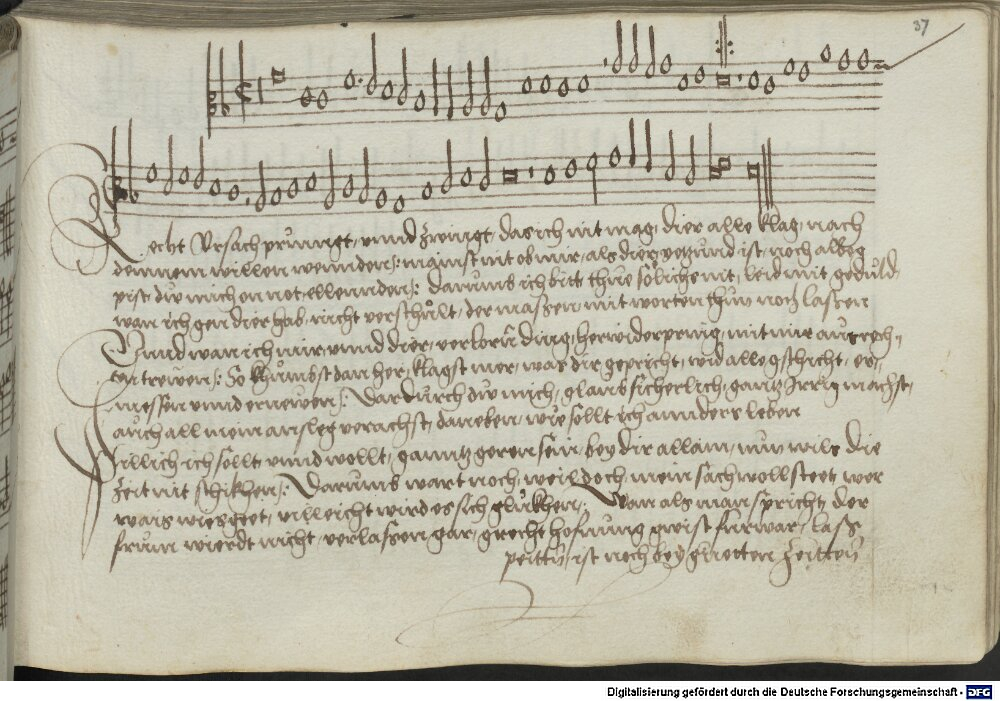 37
Recht Ursach prinngt, unnd zwingt, das ich nit mag, dier alle klag, nach
deinem willen wennden /: mainst nit ob mir, als dier yetzund ist, noch albeg
pist, diw mich on not ellennden /: Darumb ich bit thue sölichs nit, leid mit geduld
wan ich gen dier hab, nicht verschult, der massen, mit worten thuw noch lassen
Unnd wan ich mir, unnd dier, verlorn ding, herwider pring, mit mir
trewen /: So khumbst dan her, klagst mer, was dir gepricht, wid alle gschicht,
messen unnd ernewen /: Dardurch diw mich, glaub sicherlich, gantz Irrig machst,
auch all mein ansleg verachst, daneben, wie sollt ich annders leben
Pillich ich sollt, unnd wollt, ganntz geren sein, bey dir allain, nuw wils die
zeit nit schikhen /: Darumb wart noch, weil doch, mein sach woll steet, wer
wais wies geet, villeicht wird es sich glükhen /: Wan als man spricht, der
frum wierdt nicht, verlassen gar, grecht hofnung gwist furwar, lass
ist noch bey guetten Zeitten
Digitalisierung gefördert durch die Deutsche Forschungsgemeinschaft - DFG